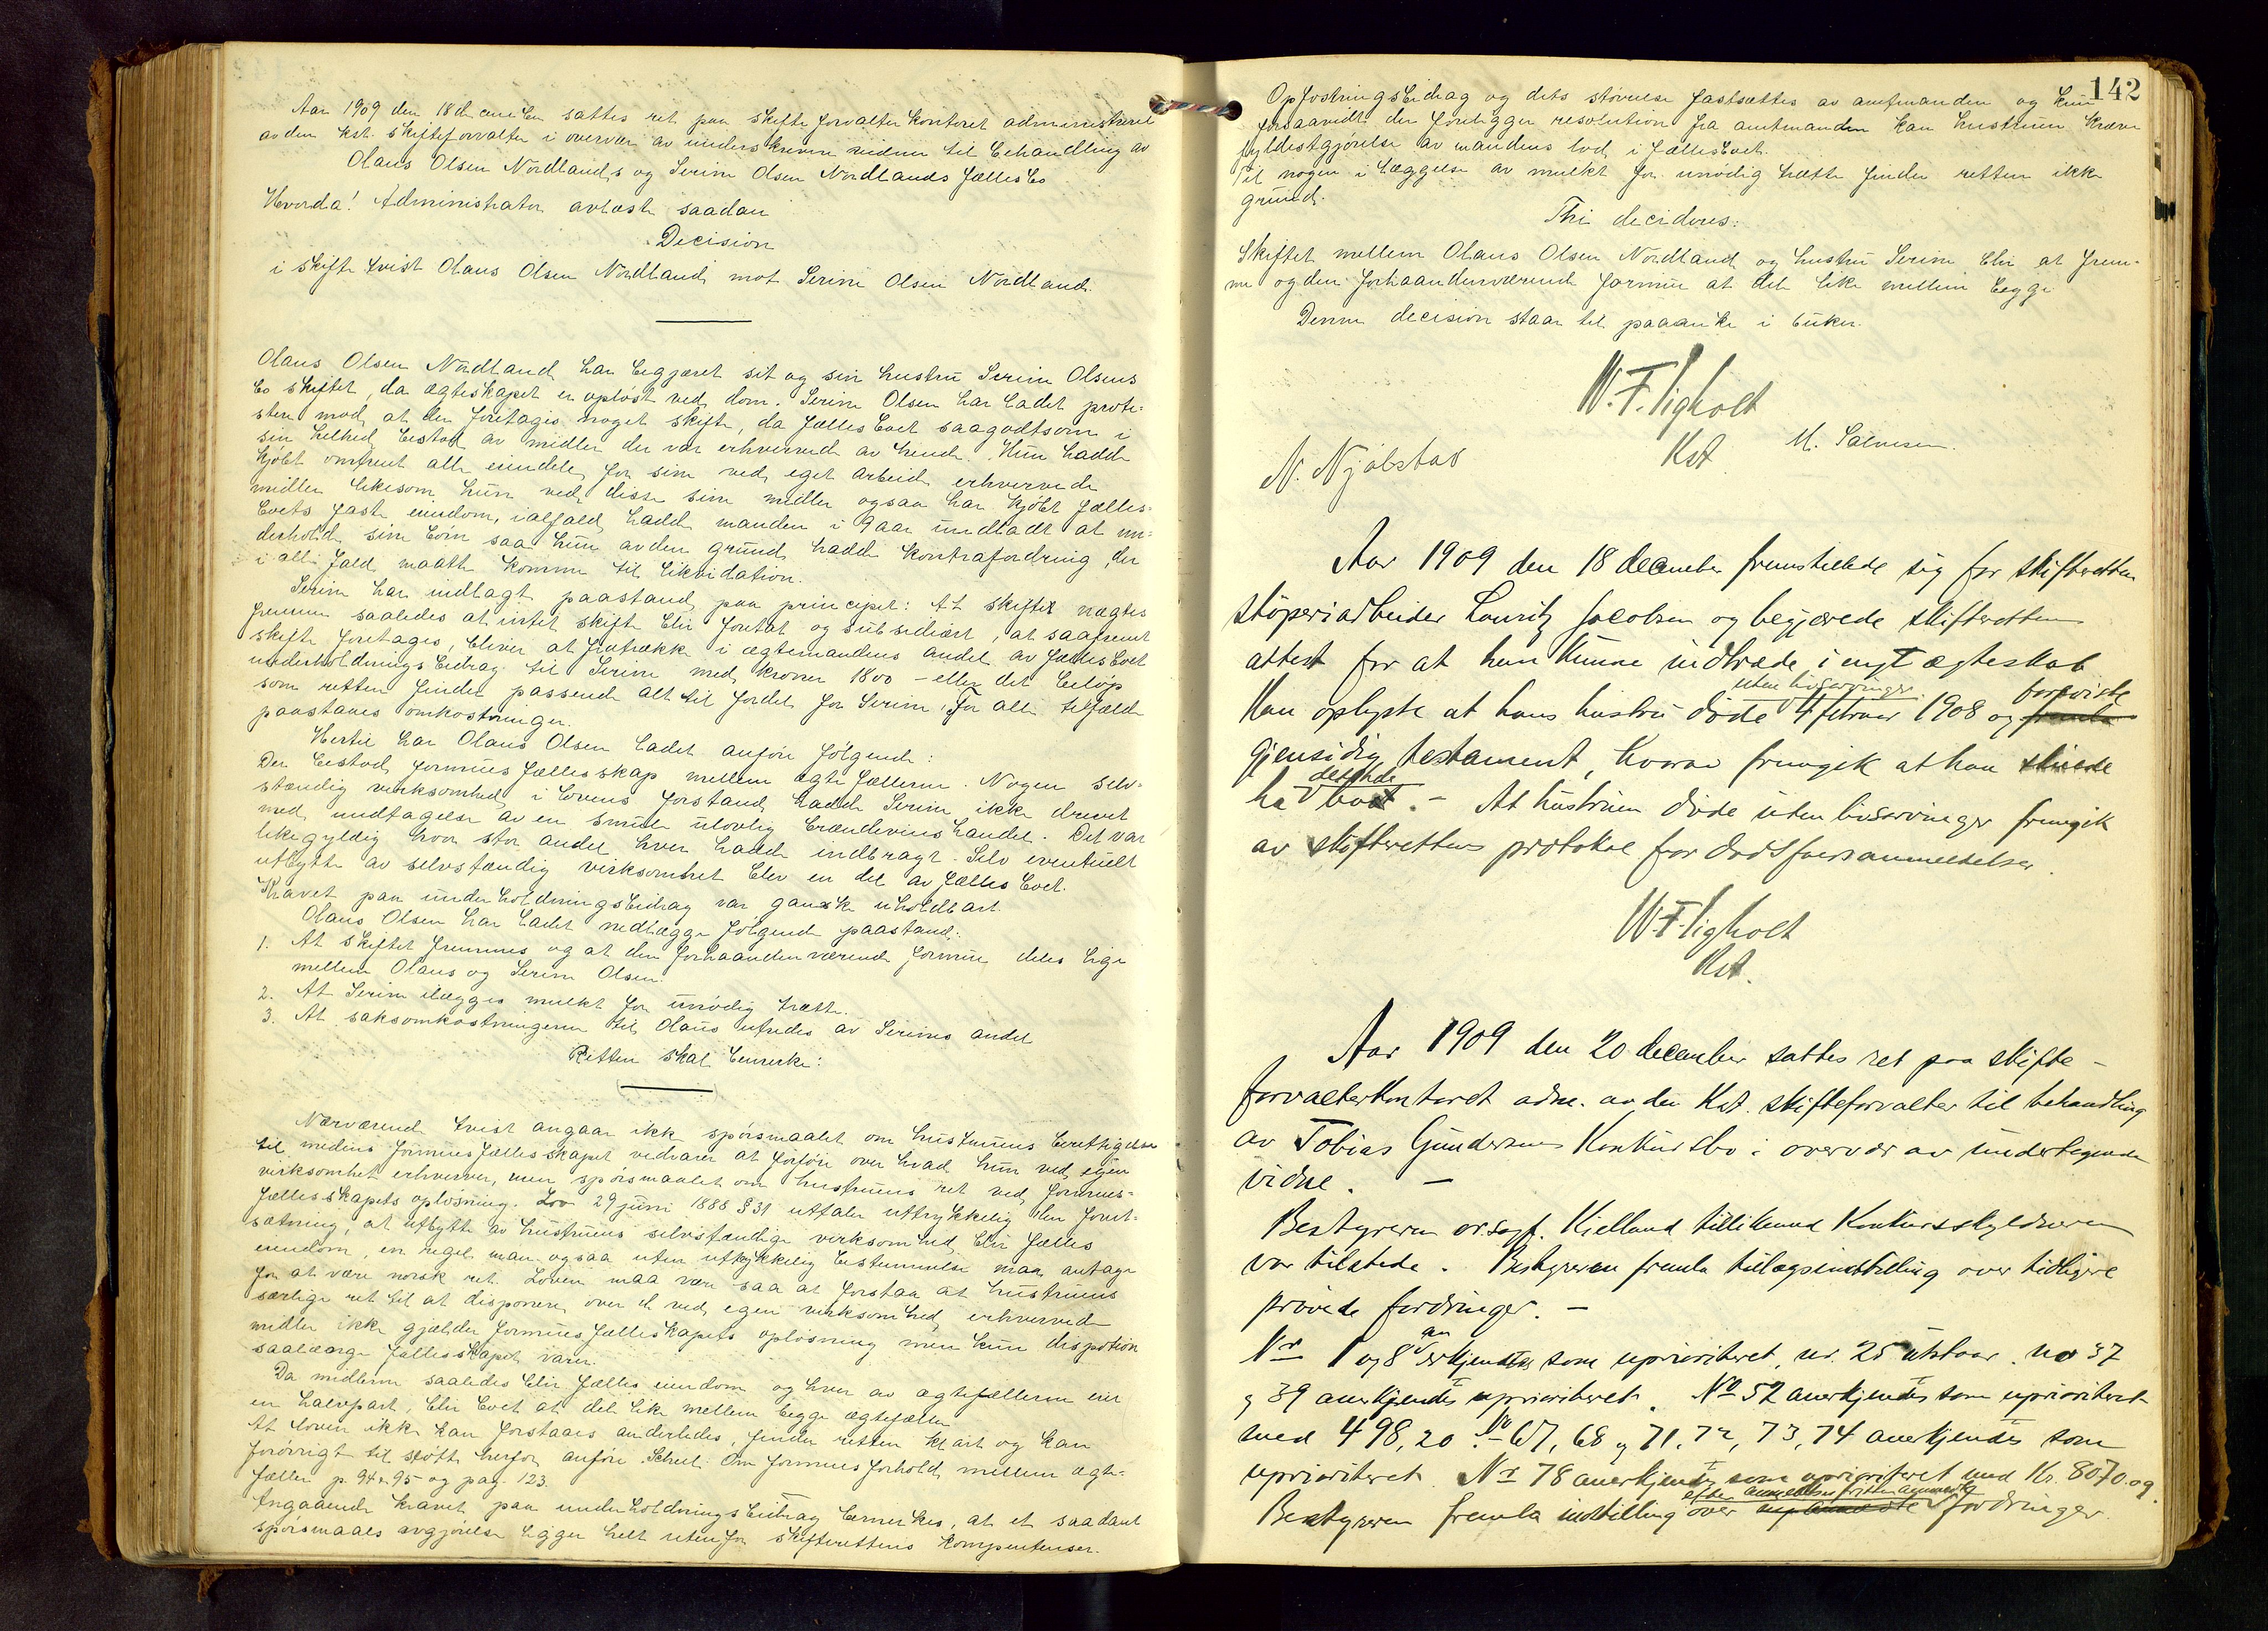 Aar 1909 den 18 december sattes ret paa skifteforvalterkontoret administreret
av den kst. skifteforvalter i overvær av underskrevne vidner til behandling av
Olaus Olsen Nordlands og Serine Olsen Nordlands fællesbo
Hvorda! Administrator avlæste saadan
Decision
i skiftetvist Olaus Olsen Nordland mot Serine Olsen Nordland.
Olaus Olsen Nordland har begjæret sit og sin hustru Serine Olsens
bo skiftet, da ægteskapet er opløst ved dom. Serine Olsen har ladet prote-
stere mod at der foretages noget skifte, da fællesboet saagodtsom i
sin helhed bestod av midler der var erhvervede av hende. Hun hadde
kjøbt omtrent alle eiendele for sine ved eget arbeide erhvervede
midler likesom hun ved disse sine midler ogsaa har kjøbt fælles-
boets faste eiendom, ialfald hadde manden i 9 aar undladt at un-
derholde sine børn saa hun av den grund hadde kontrafordring, der
i alle fald maatte komme til likvidation.
Serine har indlagt paastand paa princepet: At skiftet nægtes
fremme saaledes at intet skifte blir foretat og subsidiært, at saafremt
skifte foretages, bliver at fratrække i ægtemandens andel av fællesboet
underholdningsbidrag til Serine med kroner 1800 – eller det beløp
som retten finder passende alt til fordel for Serine. For alle tilfælde
paastaaes omkostninger.
Hertil har Olaus Olsen ladet anføre følgende:
Der bestod formuesfællesskap mellem ægtefællerne. Nogen selv-
stændig virksomhed i lovens forstand hadde Serine ikke drevet
med undtagelse av en smule ulovlig brændevinshandel. Det var
likegyldig hvor stor andel hver hadde indbragt. Selv eventuelt
utbytte av selvstændig virksomhet blev en del av fællesboet.
Kravet paa underholdningsbidrag var ganske uholdbart.
Olaus Olsen har ladet nedlægge følgende paastand:
1. At skiftet fremmes og at den forhaandenværende formue deles lige
mellem Olaus og Serine Olsen.
2. At Serine ilægges mulkt for unødig trætte.
3. At saksomkostningerne til Olaus utredes av Serines andel
Retten skal bemerke:
Nærværende tvist angaar ikke spørsmaalet om hustruens berettigelse
til medens formuesfællesskapet vedvarer at forføie over hvad hun ved egen
virksomhet erhverver, men spørsmaalet om hustruens ret ved formues-
fællesskapets opløsning. Lov 29 juni 1888 § 31 uttaler uttrykkelig den forut-
sætning, at utbytte av hustruens selvstændige virksomhed blir fælles
eiendom, en regel man ogsaa uten uttrykkelig bestemmelse maa antage
for at være norsk ret. Loven maa være saa at forstaa at hustruens
særlige ret til at disponere over de ved egen virksomhed erhvervede
midler ikke gjælder formuesfælleskapets opløsning men kun dispotion
saalænge fællesskapet varer.
Da midlerne saaledes blir fælles eiendom og hver av ægtefællerne eier
en halvpart, blir boet at dele like mellem begge ægtefæller.
At loven ikke kan forstaaes anderledes, finder retten klart og kan
forøvrigt til støtte herfor anføre Scheel: Om formuesforhold mellem ægte-
fæller p. 94 & 95 og pag. 123.
Angaaende kravet paa underholdningsbidrag bemerkes, at et saadant
spørsmaals avgjørelse ligger helt utenfor skifterettens kompentenser.
142
Opfostringsbidrag og dets størrelse fastsættes av amtmanden og kun
forsaavidt der foreligger resolution fra amtmanden kan hustruen kræve
fyldestgjørelse av mandens lod i fællesboet.
Til nogen ilæggelse av mulkt for unødig trætte finder retten ikke
grund.
Thi decideres:
Skiftet mellem Olaus Olsen Nordland og hustru Serine blir at frem-
me og den forhaandenværende formue at dele like mellem begge
Denne decision staar til paaanke i 6 uker.
W. F. Tigholt
Kst.
M. Salvesen.
N. Njølstad
Aar 1909 den 18 december fremstillede sig for skifteretten
støperiarbeider Lauritz Jacobsen og begjærede skifterettens
attest for at han kunne indtræde i nyt ægteskab
uten livsarvinger foreviste
Han oplyste at hans hustru døde 4 februar 1908 og fremla
gjensidig testament, hvorav fremgik at han skulde
ha beholde boet. – At hustruen døde uten livsarvinger fremgik
av skifterettens protokol for dødsfaldsanmeldelser.
W. F. Tigholt
Kst.
Aar 1909 den 20 december sattes ret paa skifte-
forvalterkontoret adm. av den Kst. skifteforvalter til behandling
av Tobias Gundersens Konkursbo i overvær av undertegnede
vidne. –
Bestyreren or.sagf. Kielland tillikemed Konkursskyldneren
var tilstede. Bestyreren fremla tillægsindstilling over tidligere
prøvede fordringer. –
Nr 1 og 8 anerkjendtes som uprioriteret, nr. 25 utstaar. no 37
og 39 anerkjendtes uprioriteret. No 52 anerkjendtes som uprioriteret
med 498,20. No 67, 68 og 71, 72, 73, 74 anerkjendtes som
uprioriteret. No 78 anerkjendtes som uprioriteret med Kr. 8070. og
efter anmeldelsesfristen anmeldte
Bestyreren fremla indstilling over fordringer.